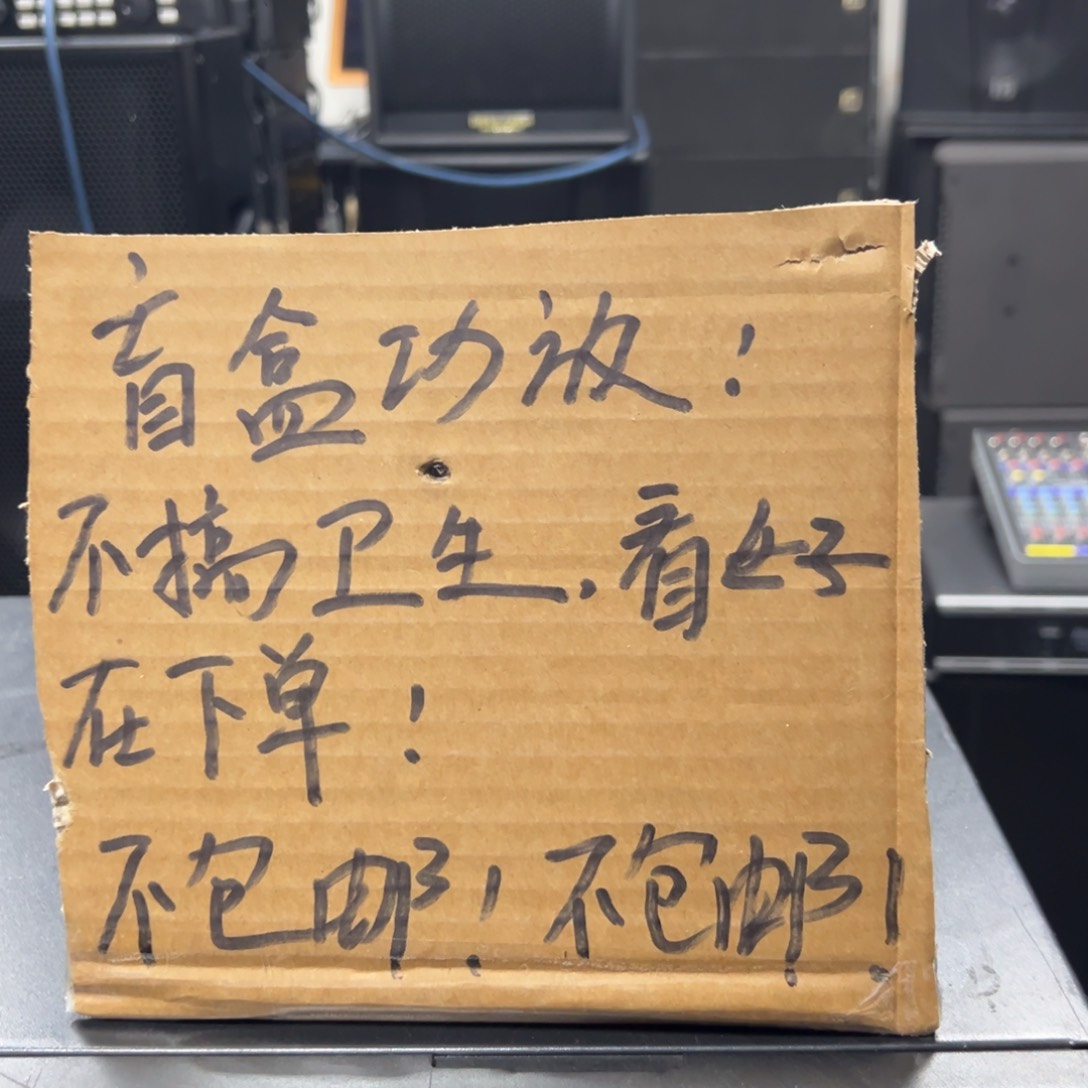 盲盒功放！
不搞卫生，看好
在下单！
不包邮！不包邮！